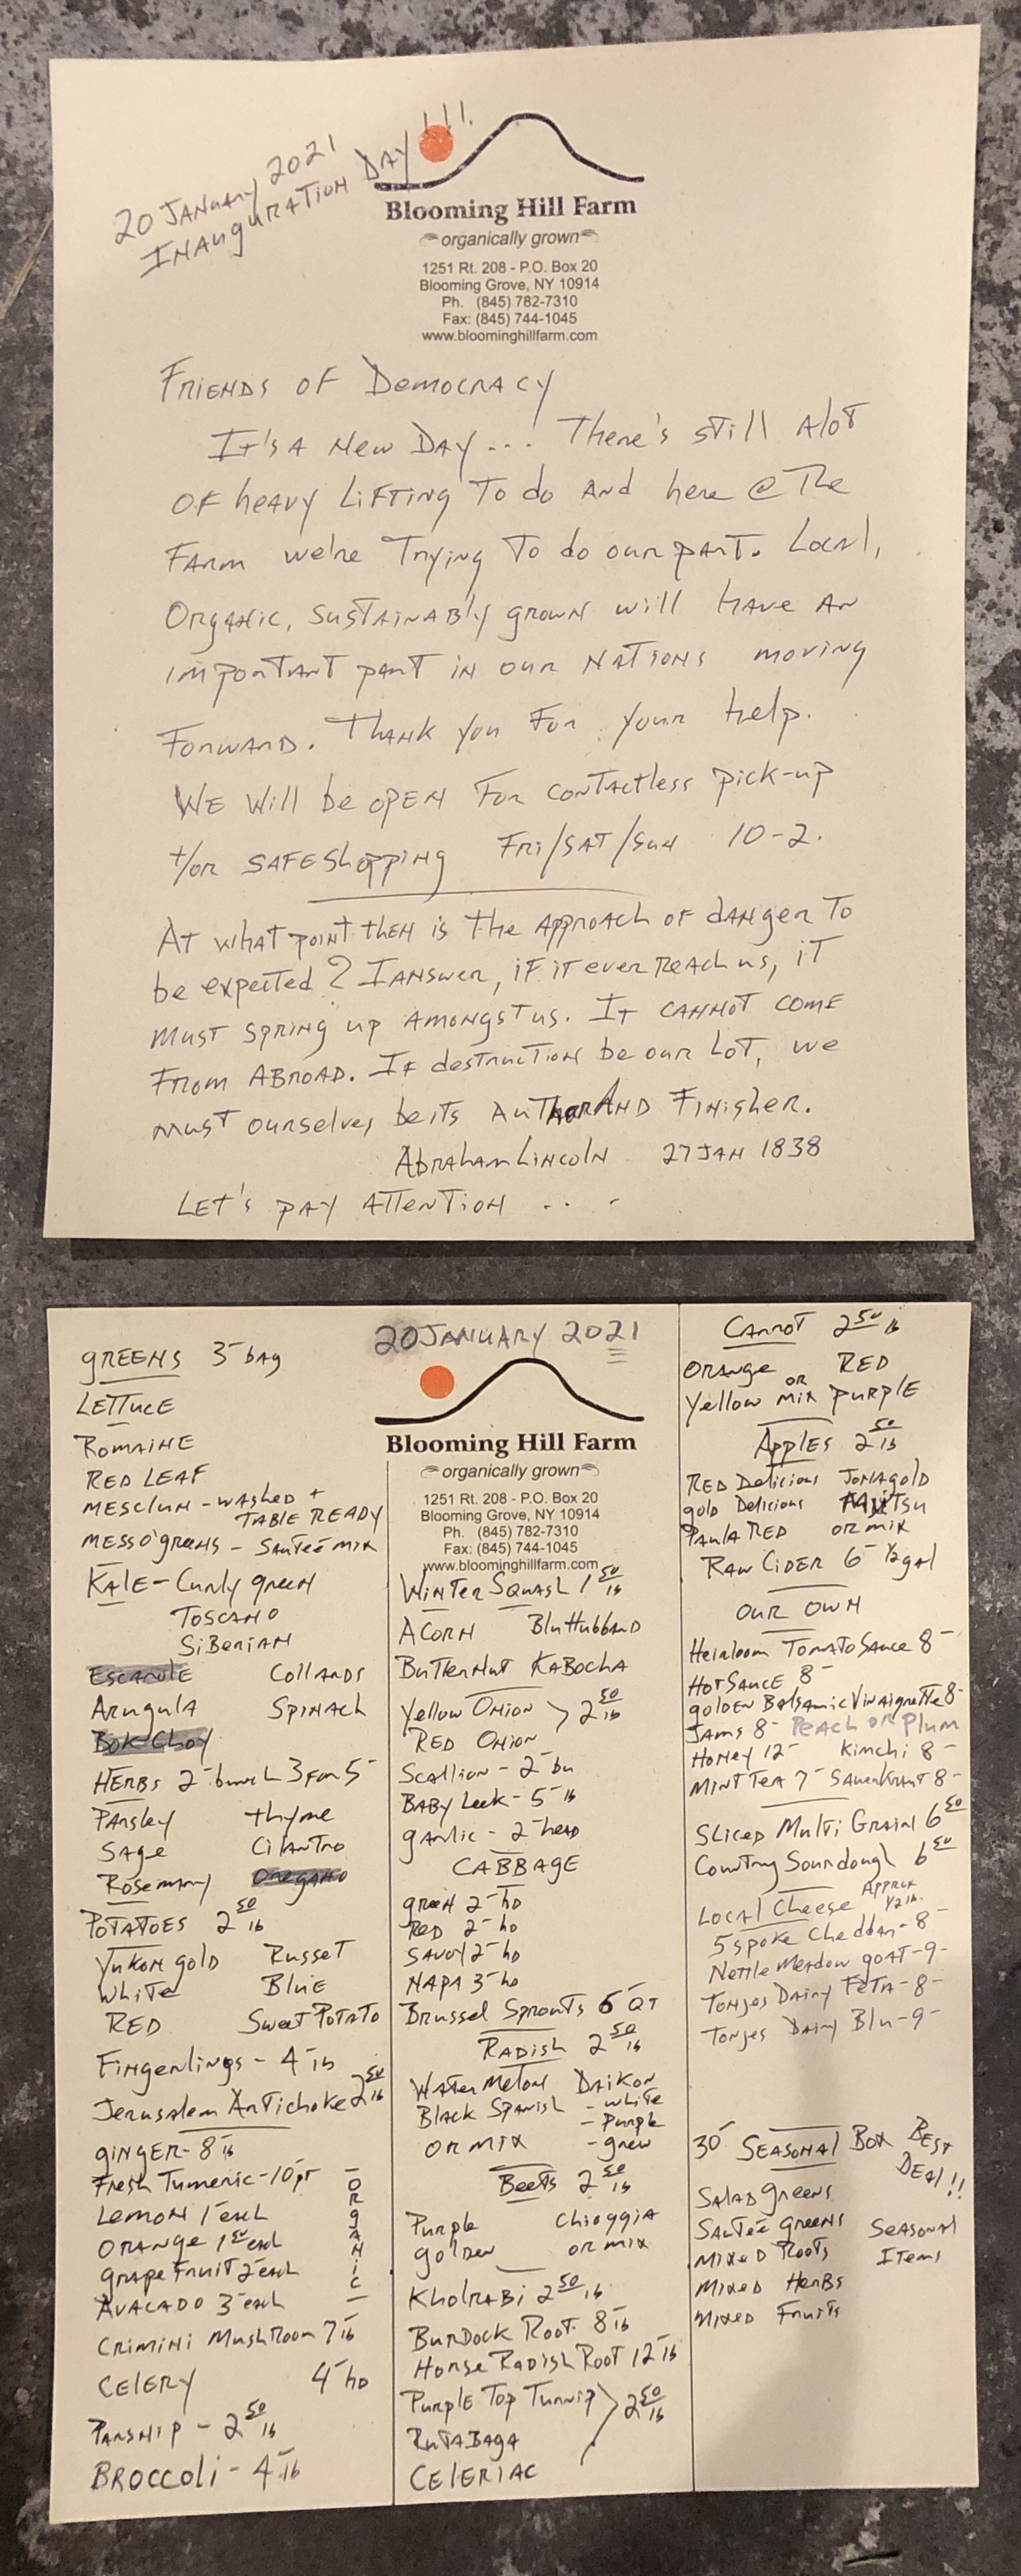 20 JANUARY 2021
INAUGURATION DAY !!!
Blooming Hill Farm
organically grown
1251 Rt. 208 - P.O. Box 20
Blooming Grove, NY 10914
Ph. (845) 782-7310
Fax: (845) 744-1045
www.bloominghillfarm.com
FRIENDS OF DEMOCRACY
IT'S A NEW DAY... THERE'S STILL ALOT
OF HEAVY LIFTING TO DO AND HERE @ THE
FARM WE'RE TRYING TO DO OUR PART. LOCAL,
ORGANIC, SUSTAINABLY GROWN WILL HAVE AN
IMPORTANT PART IN OUR NATIONS MOVING
FORWARD. THANK YOU FOR YOUR HELP.
WE WILL BE OPEN FOR CONTACTLESS PICK-UP
+/OR SAFE SHOPPING FRI/SAT/SUN 10-2.
AT WHAT POINT THEN IS THE APPROACH OF DANGER TO
BE EXPECTED? I ANSWER, IF IT EVER REACH US, IT
MUST SPRING UP AMONGST US. IT CANNOT COME
FROM ABROAD. IF DESTRUCTION BE OUR LOT, WE
MUST OURSELVES BE ITS AUTHOR AND FINISHER.
ABRAHAM LINCOLN 27 JAN 1838
LET'S PAY ATTENTION ....
20 JANUARY 2021
Blooming Hill Farm
organically grown
1251 Rt. 208 - P.O. Box 20
Blooming Grove, NY 10914
Ph. (845) 782-7310
Fax: (845) 744-1045
www.bloominghillfarm.com
GREENS 3- BAG
LETTUCE
ROMAINE
RED LEAF
MESCLUN - WASHED +
TABLE READY
MESS O' GREENS - SAUTEÉ MIX
KALE - CURLY GREEN
TOSCANO
SIBERIAN
ESCAROLE COLLARDS
ARUGULA SPINACH
BOK CHOY
HERBS 2- BUNCH 3 FOR 5-
PARSLEY THYME
SAGE CILANTRO
ROSEMARY OREGANO
POTATOES 2 50 lb
YUKON GOLD RUSSET
WHITE BLUE
RED SWEET POTATO
FINGERLINGS - 4- lb
JERUSALEM ARTICHOKE 2 50 lb
GINGER - 8- lb
FRESH TUMERIC - 10 PT
LEMON 1- EACH
ORANGE 1 50 EACH
GRAPEFRUIT 2- EACH
AVACADO 3- EACH
ORGANIC
CRIMINI MUSHROOM 7- lb
CELERY 4- HD
PARSNIP - 2 50 lb
BROCCOLI - 4- lb
WINTER SQUASH 1 50 lb
ACORN BLU HUBBARD
BUTTERNUT KABOCHA
YELLOW ONION > 2 50 lb
RED ONION
SCALLION - 2- BU
BABY LEEK - 5- lb
GARLIC - 2- HEAD
CABBAGE
GREEN 2- HD
RED 2- HD
SAVOY 2- HD
NAPA 3- HD
BRUSSEL SPROUTS 6- QT
RADISH 2 50 lb
WATERMELON DAIKON
BLACK SPANISH - WHITE
- PURPLE
OR MIX - GREEN
BEETS 2 50 lb
PURPLE CHIOGGIA
GOLDEN OR MIX
KHOLRABI 2 50 lb
BURDOCK ROOT 8- lb
HORSE RADISH ROOT 12- lb
PURPLE TOP TURNIP > 2 50 lb
RUTABAGA
CELERIAC
CARROT 2 50 lb
ORANGE RED
YELLOW OR MIX PURPLE
APPLES 2 50 lb
RED DELICIOUS JONAGOLD
GOLD DELICIOUS MUTSU
PAULA RED OR MIX
RAW CIDER 6- 1/2 GAL
OUR OWN
HEIRLOOM TOMATO SAUCE 8-
HOT SAUCE 8-
GOLDEN BALSAMIC VINAIGRETTE 8-
JAMS 8- PEACH OR PLUM
HONEY 12- KIMCHI 8-
MINT TEA 7- SAUERKRAUT 8-
SLICED MULTI GRAIN 6 50
COUNTRY SOURDOUGH 6 50
LOCAL CHEESE APPROX 1/2 lb.
5 SPOKE CHEDDAR - 8-
NETTLE MEADOW GOAT - 9-
TONJES DAIRY FETA - 8-
TONJES DAIRY BLU - 9-
30- SEASONAL BOX BEST
DEAL!!
SALAD GREENS
SAUTEÉ GREENS SEASONAL
MIXED ROOTS ITEMS
MIXED HERBS
MIXED FRUITS